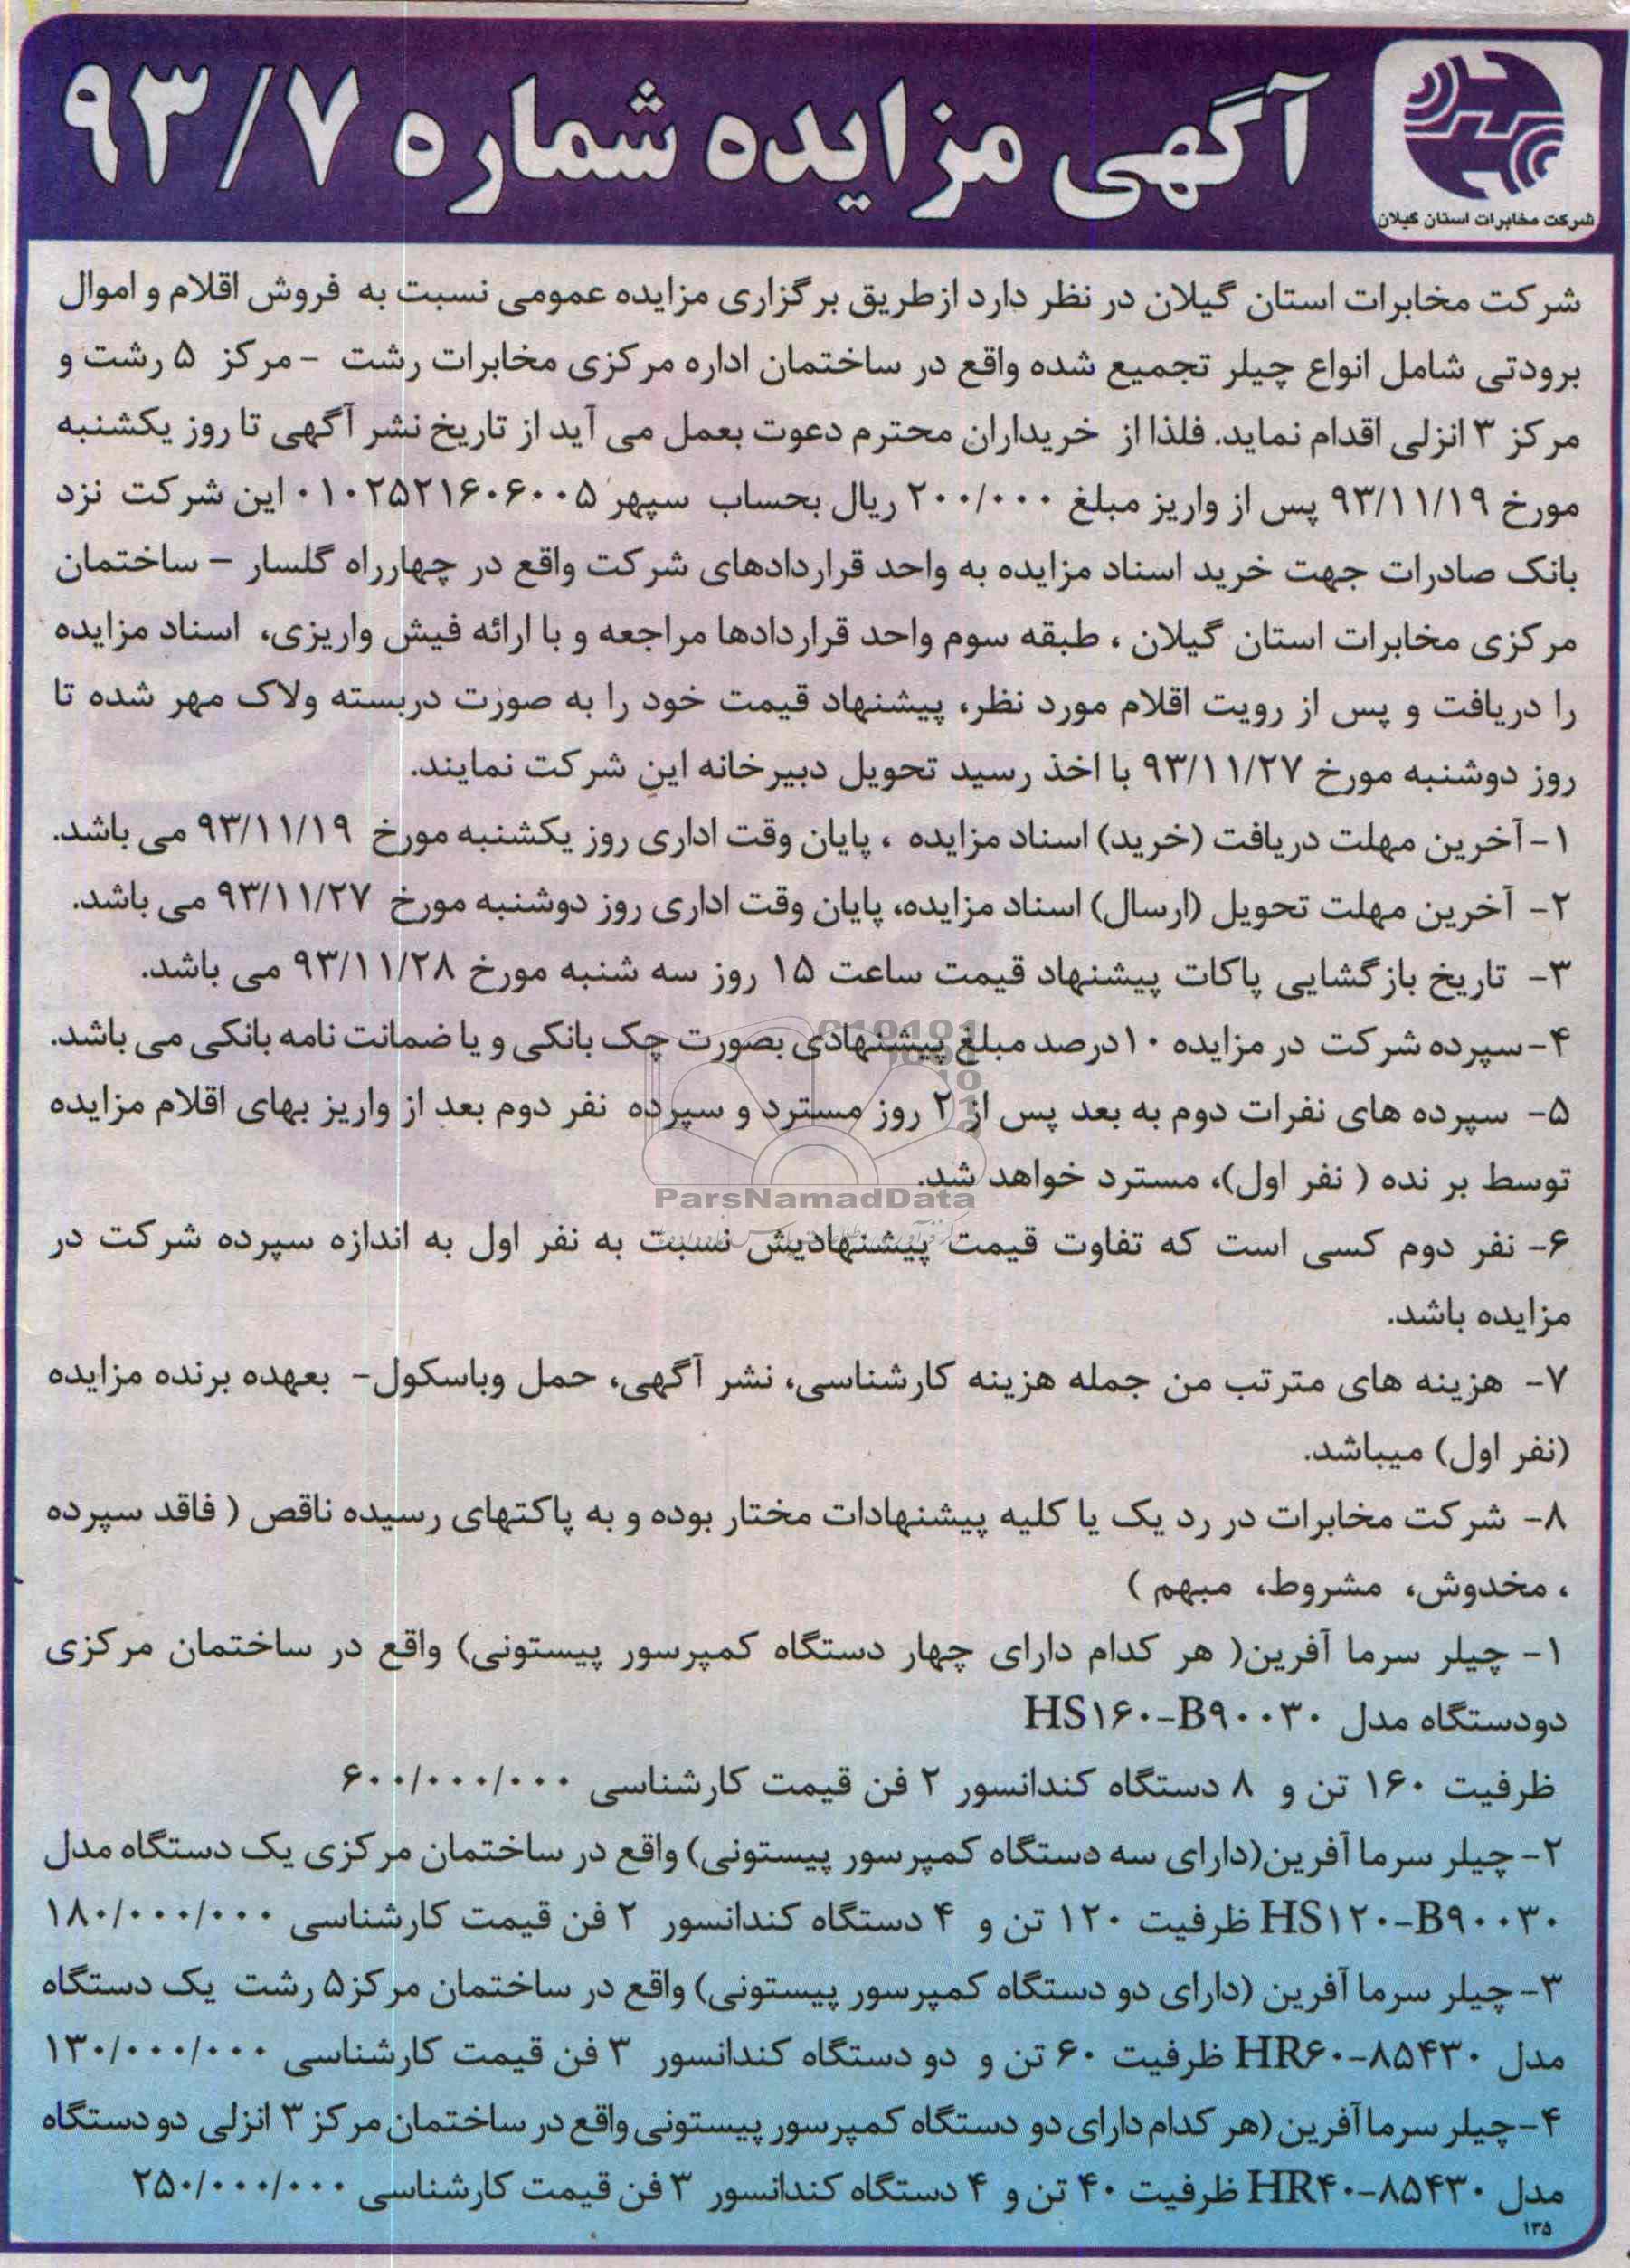 آگهی مزایده شماره ۹۳/۷
شرکت مخابرات استان گیلان
شرکت مخابرات استان گیلان در نظر دارد ازطریق برگزاری مزایده عمومی نسبت به فروش اقلام و اموال
برودتی شامل انواع چیلر تجمیع شده واقع در ساختمان اداره مرکزی مخابرات رشت - مرکز ۵ رشت و
مرکز ۳ انزلی اقدام نماید. فلذا از خریداران محترم دعوت بعمل می آید از تاریخ نشر آگهی تا روز یکشنبه
مورخ ۹۳/۱۱/۱۹ پس از واریز مبلغ ۲۰۰/۰۰۰ ریال بحساب سپهر ۰۱۰۲۵۲۱۶۰۶۰۰۵ این شرکت نزد
بانک صادرات جهت خرید اسناد مزایده به واحد قراردادهای شرکت واقع در چهارراه گلسار - ساختمان
مرکزی مخابرات استان گیلان ، طبقه سوم واحد قراردادها مراجعه و با ارائه فیش واریزی، اسناد مزایده
را دریافت و پس از رویت اقلام مورد نظر، پیشنهاد قیمت خود را به صورت دربسته ولاک مهر شده تا
روز دوشنبه مورخ ۹۳/۱۱/۲۷ با اخذ رسید تحویل دبیرخانه این شرکت نمایند.
۱- آخرین مهلت دریافت (خرید) اسناد مزایده ، پایان وقت اداری روز یکشنبه مورخ ۹۳/۱۱/۱۹ می باشد.
۲- آخرین مهلت تحویل (ارسال) اسناد مزایده، پایان وقت اداری روز دوشنبه مورخ ۹۳/۱۱/۲۷ می باشد.
۳- تاریخ بازگشایی پاکات پیشنهاد قیمت ساعت ۱۵ روز سه شنبه مورخ ۹۳/۱۱/۲۸ می باشد.
۴- سپرده شرکت در مزایده ۱۰درصد مبلغ پیشنهادی بصورت چک بانکی و یا ضمانت نامه بانکی می باشد.
۵- سپرده های نفرات دوم به بعد پس از ۲ روز مسترد و سپرده نفر دوم بعد از واریز بهای اقلام مزایده
توسط بر نده ( نفر اول)، مسترد خواهد شد.
ParsNamadData
۶- نفر دوم کسی است که تفاوت قیمت پیشنهادیش نسبت به نفر اول به اندازه سپرده شرکت در
مزایده باشد.
۷- هزینه های مترتب من جمله هزینه کارشناسی، نشر آگهی، حمل وباسکول- بعهده برنده مزایده
(نفر اول) میباشد.
۸- شرکت مخابرات در رد یک یا کلیه پیشنهادات مختار بوده و به پاکتهای رسیده ناقص ( فاقد سپرده
، مخدوش، مشروط، مبهم )
۱- چیلر سرما آفرین( هر کدام دارای چهار دستگاه کمپرسور پیستونی) واقع در ساختمان مرکزی
دودستگاه مدل HS۱۶۰-B۹۰۰۳۰
ظرفیت ۱۶۰ تن و ۸ دستگاه کندانسور ۲ فن قیمت کارشناسی ۶۰۰/۰۰۰/۰۰۰
۲- چیلر سرما آفرین(دارای سه دستگاه کمپرسور پیستونی) واقع در ساختمان مرکزی یک دستگاه مدل
HS۱۲۰-B۹۰۰۳۰ ظرفیت ۱۲۰ تن و ۴ دستگاه کندانسور ۲ فن قیمت کارشناسی ۱۸۰/۰۰۰/۰۰۰
۳- چیلر سرما آفرین (دارای دو دستگاه کمپرسور پیستونی) واقع در ساختمان مرکز۵ رشت یک دستگاه
مدل HR۶۰-۸۵۴۳۰ ظرفیت ۶۰ تن و دو دستگاه کندانسور ۳ فن قیمت کارشناسی ۱۳۰/۰۰۰/۰۰۰
۴-چیلر سرما آفرین (هر کدام دارای دو دستگاه کمپرسور پیستونی واقع در ساختمان مرکز ۳ انزلی دو دستگاه
مدل HR۴۰-۸۵۴۳۰ ظرفیت ۴۰ تن و ۴ دستگاه کندانسور ۳ فن قیمت کارشناسی ۲۵۰/۰۰۰/۰۰۰
۱۳۵